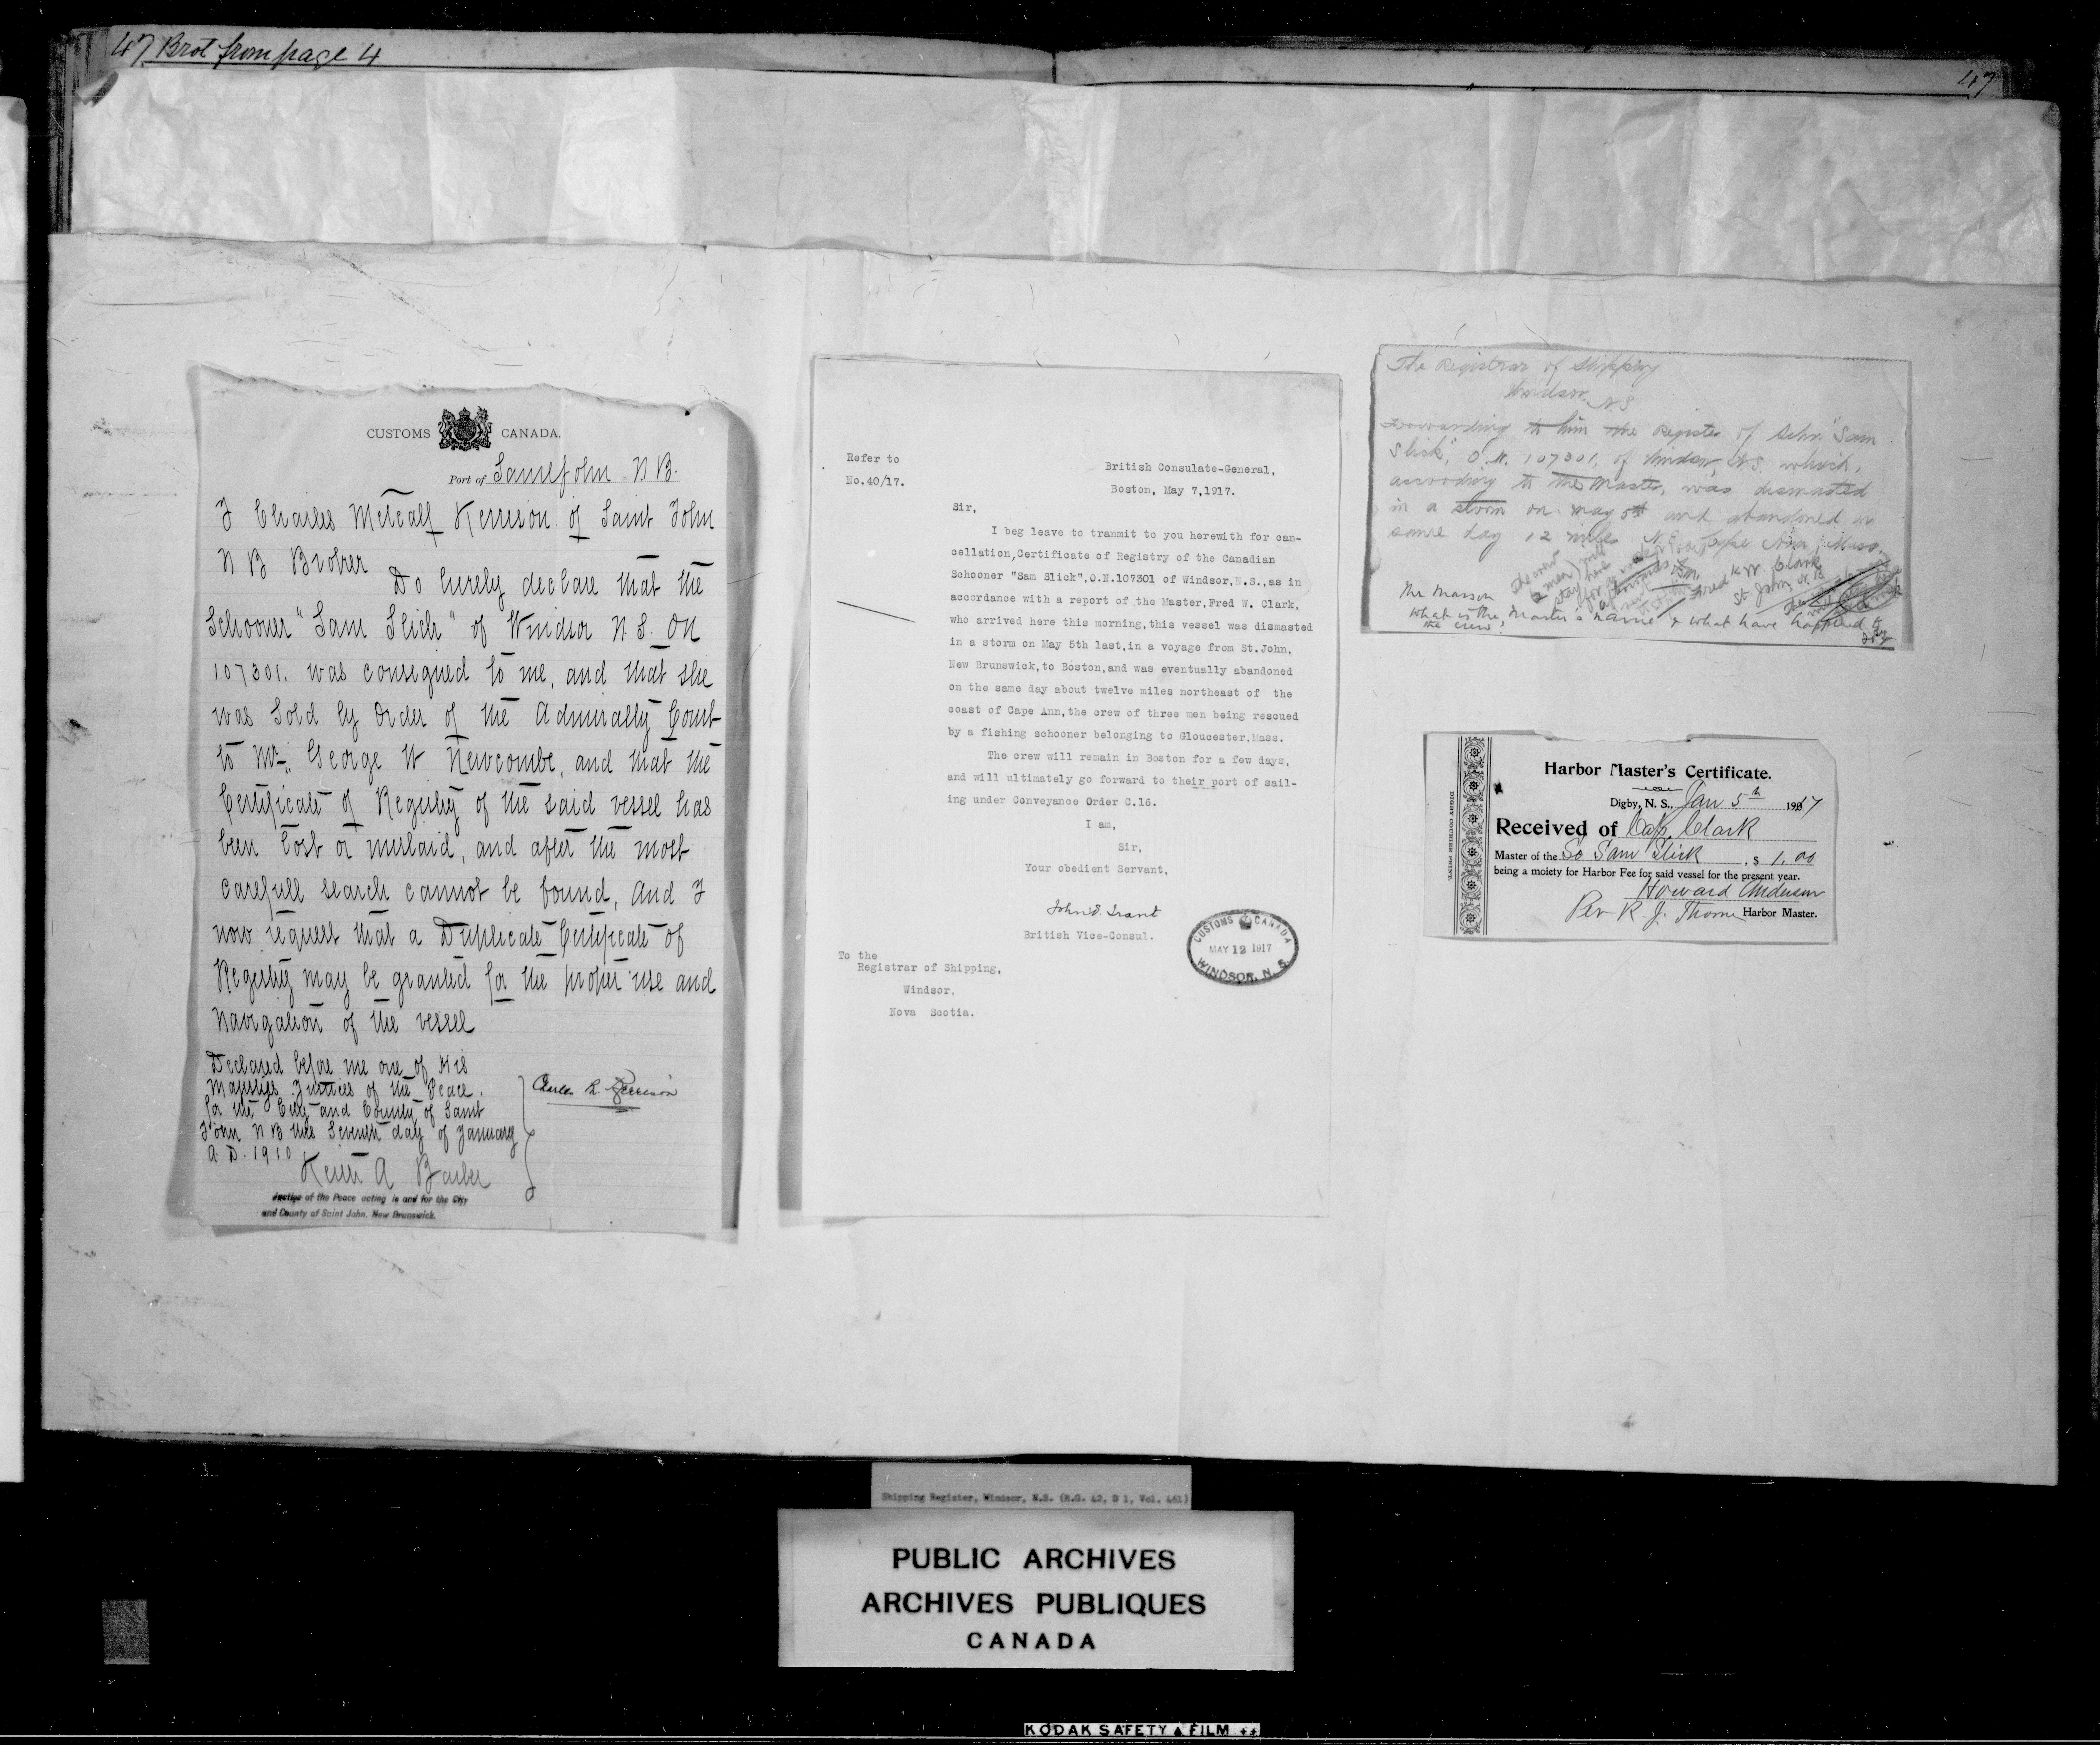 47 Brot from page 4
47
CUSTOMS CANADA.
Port of Saint John N B.
I Charles Metcalf Kerrison of Saint John
N B Broker
Do hereby declare that the
Schooner "Sam Slick" of Windsor N. S. ON
107301. was consigned to me, and that she
was Sold by Order of the Admiralty Court
to Mr. George W Newcombe, and that the
Certificate of Registry of the said vessel has
been Lost or mislaid, and after the most
carefull search cannot be found, And I
now request that a Duplicate Certificate of
Registry may be granted for the proper use and
Navigation of the vessel
Declared before me one of His
Majestys Justices of the Peace.
for the City and County of Saint
John N B this Seventh day of January
A. D. 1910
Kerrison
Keith A Barber
Justice of the Peace acting in and for the City
and County of Saint John, New Brunswick.
Refer to
No.40/17.
British Consulate-General,
Boston, May 7,1917.
Sir,
I beg leave to tranmit to you herewith for can-
cellation,Certificate of Registry of the Canadian
Schooner "Sam Slick",O.N.107301 of Windsor,N.S.,as in
accordance with a report of the Master,Fred W. Clark,
who arrived here this morning,this vessel was dismasted
in a storm on May 5th last,in a voyage from St.John,
New Brunswick,to Boston,and was eventually abandoned
on the same day about twelve miles northeast of the
coast of Cape Ann,the crew of three men being rescued
by a fishing schooner belonging to Gloucester,Mass.
The crew will remain in Boston for a few days,
and will ultimately go forward to their port of sail-
ing under Conveyance Order C.16.
I am,
Sir,
Your obedient Servant,
British Vice-Consul.
CUSTOMS CANADA
MAY 12 1917
WINDSOR, N. S.
To the
Registrar of Shipping,
Windsor,
Nova Scotia.
The Registrar of Shipping
Windsor, N.S.
Forwarding to him the Register of Schr. "Sam
Slick", O.N. 107301, of Windsor, N.S. which,
according to the Master, was dismasted
in a storm on May 5th and abandoned on
same day 12 miles N.E. Cape Ann, Mass.
Fred W. Clark
St John, N.B.
Mr Masson
What is the Master's name & what have happened to
the crew?
DIGBY COURIER PRINT.
Harbor Master's Certificate.
Digby, N. S., Jan 5th 1917
Received of Cap. Clark
Master of the Sc Sam Slick $ 1.00
being a moiety for Harbor Fee for said vessel for the present year.
Howard Anderson
Per R. J. Thorne Harbor Master.
Shipping Register, Windsor, N.S. (R.G. 42, D 1, Vol. 461)
PUBLIC ARCHIVES
ARCHIVES PUBLIQUES
CANADA
KODAK SAFETY FILM